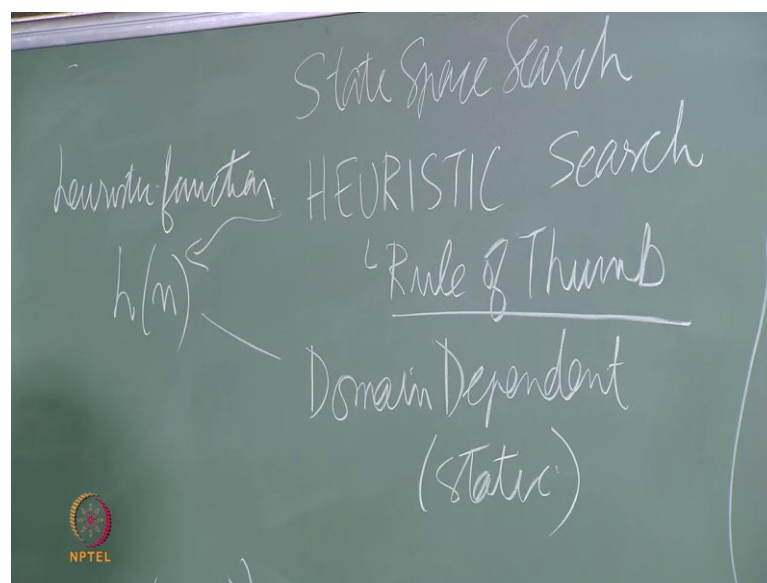 State Space Search
heuristic function HEURISTIC Search
Rule of Thumb
h(n)
Domain Dependent
(static)
NPTEL